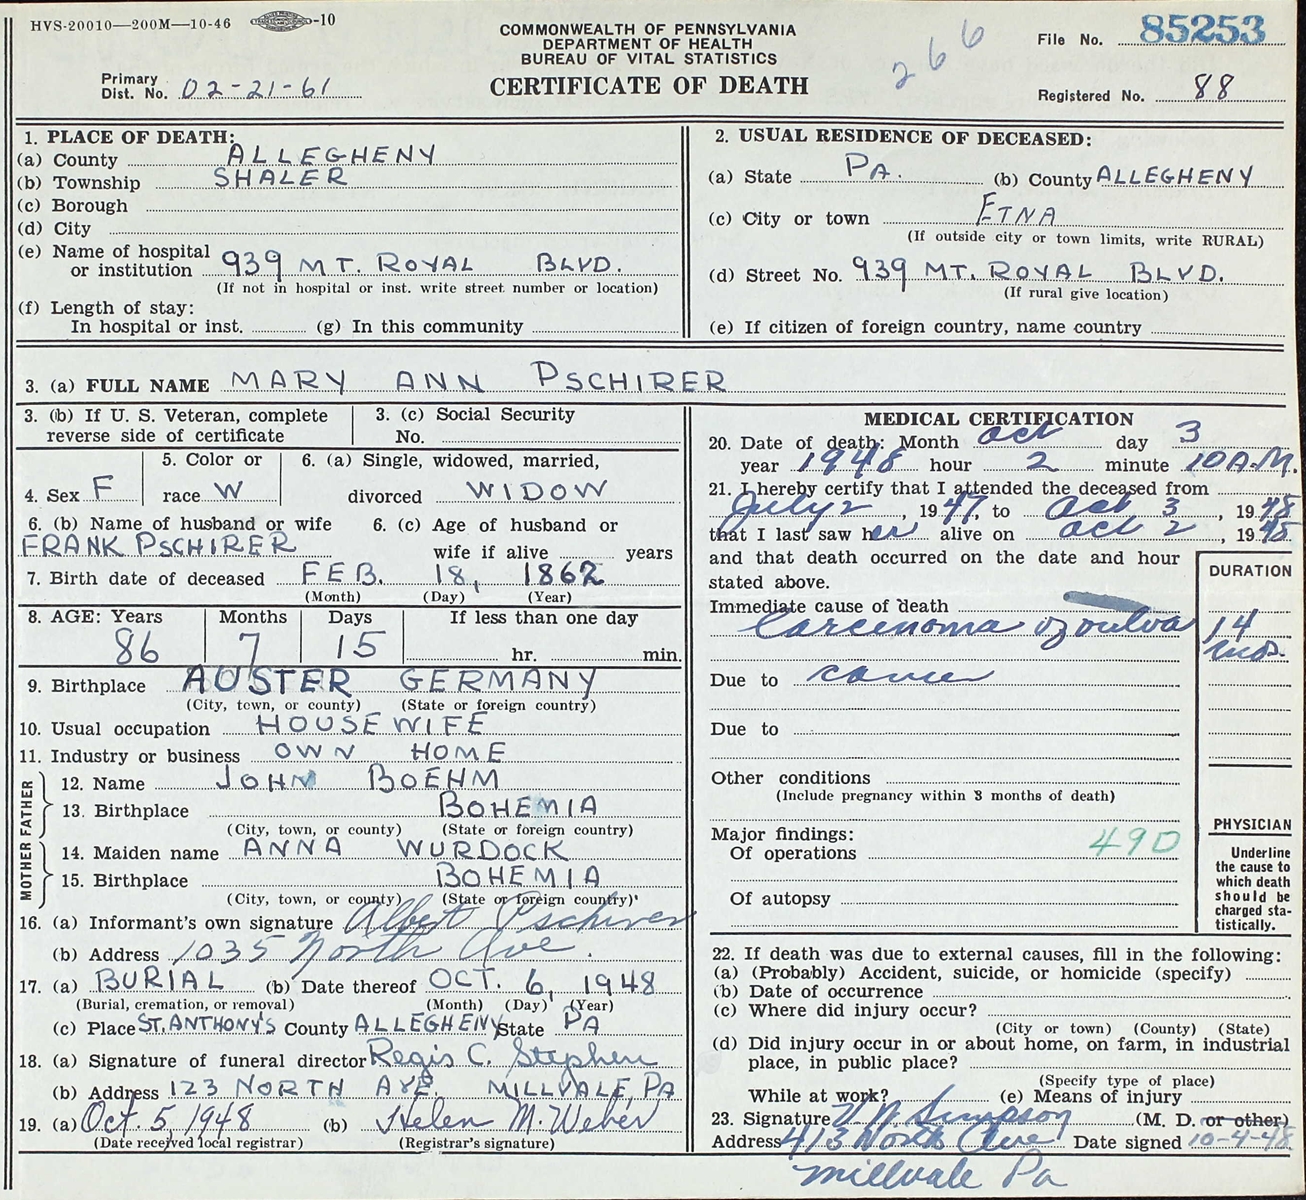 HVS-20010—200M—10-46 -10
COMMONWEALTH OF PENNSYLVANIA
DEPARTMENT OF HEALTH
BUREAU OF VITAL STATISTICS
CERTIFICATE OF DEATH
266
File No. 85253
Primary
Dist. No. 02-21-61
Registered No. 88
1. PLACE OF DEATH:
(a) County ALLEGHENY
(b) Township SHALER
(c) Borough
(d) City
(e) Name of hospital
or institution 939 MT. ROYAL BLVD.
(If not in hospital or inst. write street number or location)
(f) Length of stay:
In hospital or inst. (g) In this community
2. USUAL RESIDENCE OF DECEASED:
(a) State PA. (b) County ALLEGHENY
(c) City or town ETNA
(If outside city or town limits, write RURAL)
(d) Street No. 939 MT. ROYAL BLVD.
(If rural give location)
(e) If citizen of foreign country, name country
3. (a) FULL NAME MARY ANN PSCHIRER
3. (b) If U. S. Veteran, complete
reverse side of certificate
3. (c) Social Security
No.
4. Sex F
5. Color or
race W
6. (a) Single, widowed, married,
divorced WIDOW
6. (b) Name of husband or wife
FRANK PSCHIRER
6. (c) Age of husband or
wife if alive years
7. Birth date of deceased FEB. 18, 1862
(Month) (Day) (Year)
8. AGE: Years Months Days If less than one day
86 7 15 hr. min.
9. Birthplace AUSTER GERMANY
(City, town, or county) (State or foreign country)
10. Usual occupation HOUSEWIFE
11. Industry or business OWN HOME
FATHER
12. Name JOHN BOEHM
13. Birthplace BOHEMIA
(City, town, or county) (State or foreign country)
MOTHER
14. Maiden name ANNA WURDOCK
15. Birthplace BOHEMIA
(City, town, or county) (State or foreign country)
16. (a) Informant's own signature Albert Pschirer
(b) Address 1035 North Ave.
17. (a) BURIAL (b) Date thereof OCT. 6, 1948
(Burial, cremation, or removal) (Month) (Day) (Year)
(c) Place ST. ANTHONY'S County ALLEGHENY State PA
18. (a) Signature of funeral director Regis C. Stephen
(b) Address 123 NORTH AVE. MILLVALE, PA
19. (a) Oct. 5, 1948 (b) Helen M. Weber
(Date received local registrar) (Registrar's signature)
MEDICAL CERTIFICATION
20. Date of death: Month Oct day 3
year 1948 hour 2 minute 10 A.M.
21. I hereby certify that I attended the deceased from
July 2, 1947, to Oct 3, 1948
that I last saw her alive on Oct 2, 1948
and that death occurred on the date and hour
stated above.
DURATION
Immediate cause of death
Carcinoma of vulva 14
mos.
Due to cancer
Due to
Other conditions
(Include pregnancy within 3 months of death)
Major findings:
Of operations 49D
Of autopsy
PHYSICIAN
Underline
the cause to
which death
should be
charged sta-
tistically.
22. If death was due to external causes, fill in the following:
(a) (Probably) Accident, suicide, or homicide (specify)
(b) Date of occurrence
(c) Where did injury occur?
(City or town) (County) (State)
(d) Did injury occur in or about home, on farm, in industrial
place, in public place?
(Specify type of place)
While at work? (e) Means of injury
23. Signature Simpson (M. D. or other)
Address 413 North Ave Date signed 10-4-48
Millvale Pa